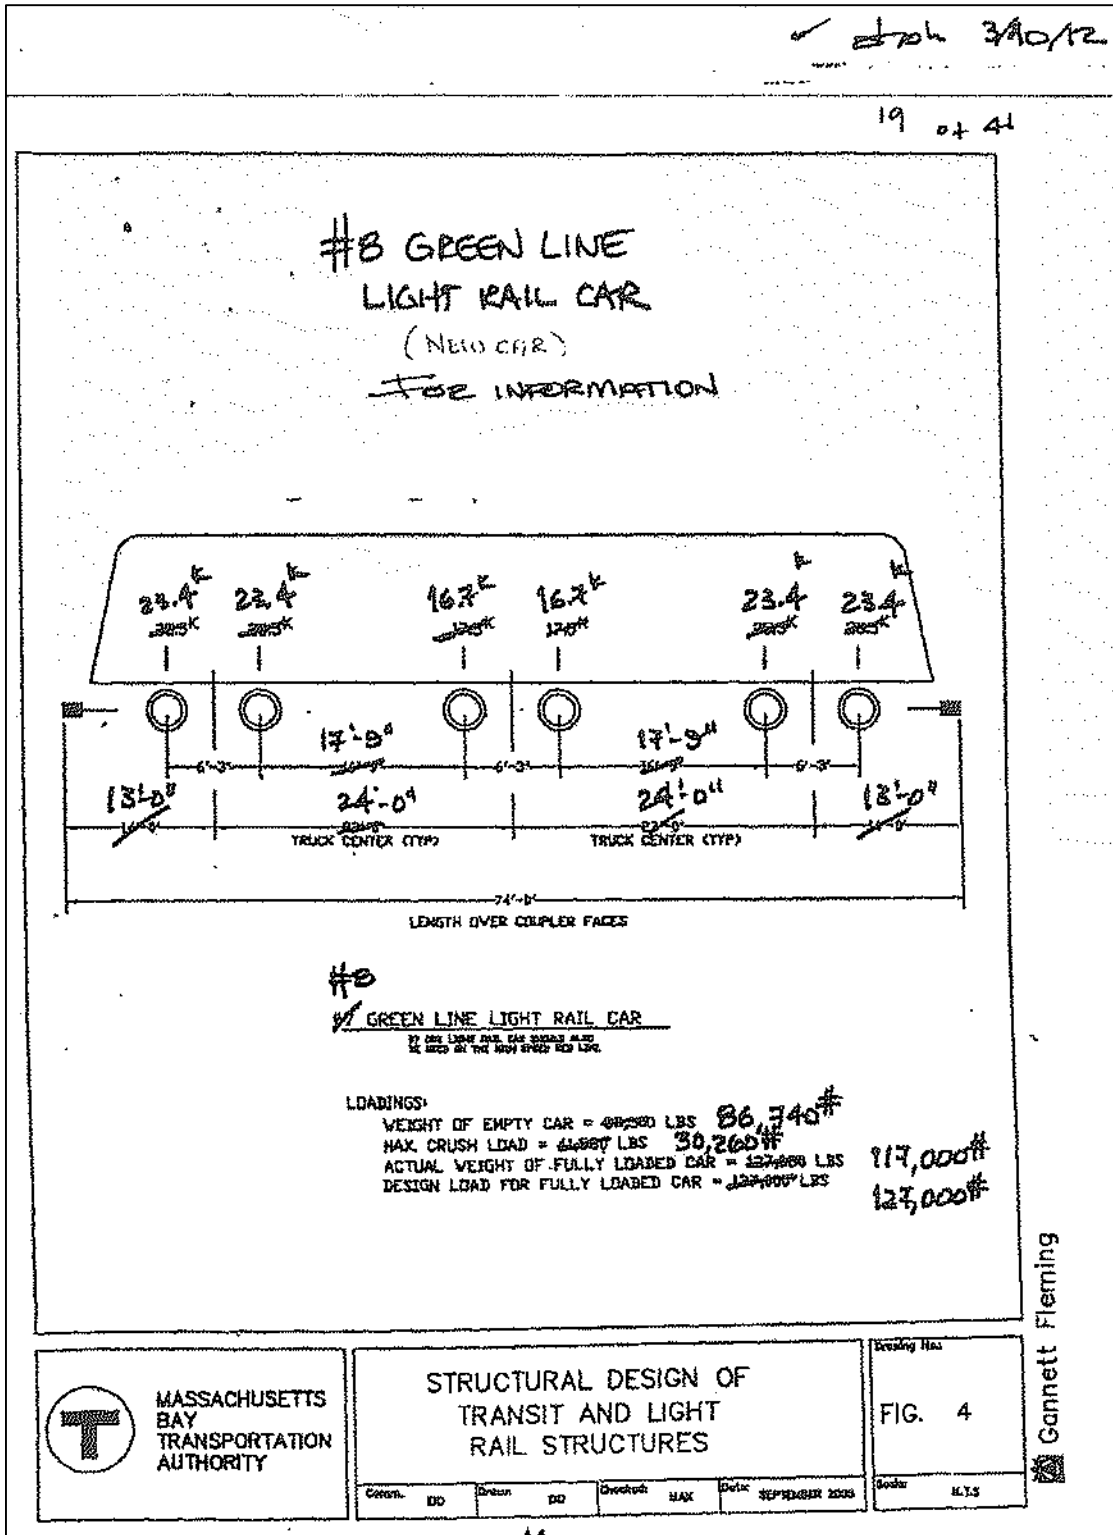 3/10/12
19 of 41
#8 GREEN LINE
LIGHT RAIL CAR
(NEW CAR)
FOR INFORMATION
23.4K 23.4K 16.7K 16.7K 23.4K 23.4K
17'-9" 17'-9"
6'-3" 6'-3" 6'-3"
13'-0" 24'-0" 24'-0" 13'-0"
TRUCK CENTER (TYP) TRUCK CENTER (TYP)
74'-0"
LENGTH OVER COUPLER FACES
#8
#7 GREEN LINE LIGHT RAIL CAR
LOADINGS:
WEIGHT OF EMPTY CAR = LBS 86,740#
MAX. CRUSH LOAD = LBS 30,260#
ACTUAL WEIGHT OF FULLY LOADED CAR = LBS 117,000#
DESIGN LOAD FOR FULLY LOADED CAR = 127,000 LBS 127,000#
Gannett Fleming
MASSACHUSETTS
BAY
TRANSPORTATION
AUTHORITY
T
STRUCTURAL DESIGN OF
TRANSIT AND LIGHT
RAIL STRUCTURES
Drawing No.:
FIG. 4
Comm. DD Drawn DD Checked: MAX Date: SEPTEMBER 2005 Scale: N.T.S